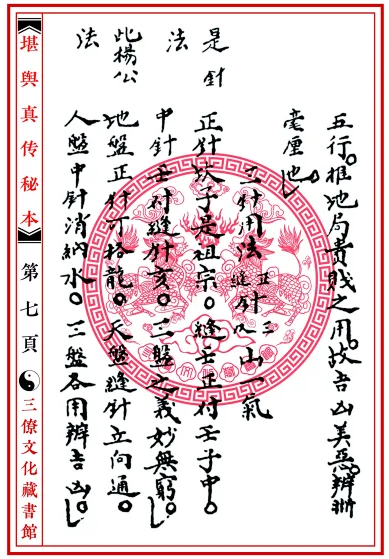 五行。推地局貴賤之用。故吉凶美惡。辨
毫厘也。
三針用法 正針 縫針 山一氣
是針
正針坎子是祖宗。縫壬正付壬子中。
法
中針壬付縫針亥。三盤之義妙無窮。
此楊公
地盤正針可格龍。天盤縫針立向通。
法
人盤中針消納水。三盤各用辨吉凶。
堪舆真传秘本 第七頁 三僚文化藏書館